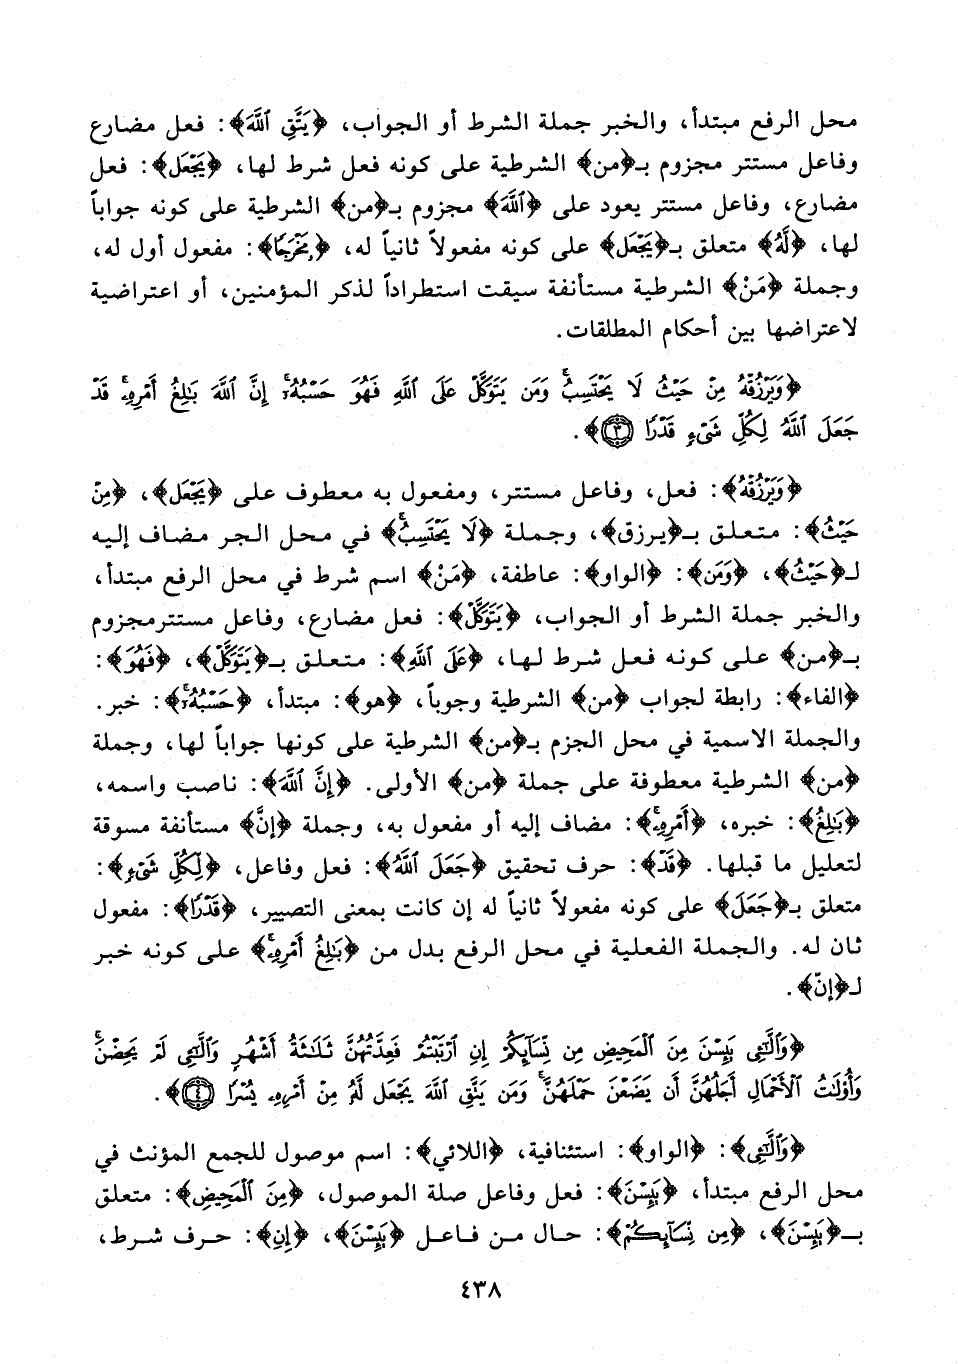 محل الرفع مبتدأ، والخبر جملة الشرط أو الجواب، ﴿يَتَّقِ ٱللَّهَ﴾: فعل مضارع
وفاعل مستتر مجزوم بـ﴿من﴾ الشرطية على كونه فعل شرط لها، ﴿يَجْعَل﴾: فعل
مضارع، وفاعل مستتر يعود على ﴿ٱللَّهَ﴾ مجزوم بـ﴿من﴾ الشرطية على كونه جواباً
لها، ﴿لَّهُۥ﴾ متعلق بـ﴿يَجْعَل﴾ على كونه مفعولاً ثانياً له، ﴿مَخْرَجًا﴾: مفعول أول له،
وجملة ﴿مَنْ﴾ الشرطية مستأنفة سيقت استطراداً لذكر المؤمنين، أو اعتراضية
لاعتراضها بين أحكام المطلقات.
﴿وَيَرْزُقْهُ مِنْ حَيْثُ لَا يَحْتَسِبُ ۚ وَمَن يَتَوَكَّلْ عَلَى ٱللَّهِ فَهُوَ حَسْبُهُۥٓ ۚ إِنَّ ٱللَّهَ بَٰلِغُ أَمْرِهِۦ ۚ قَدْ
جَعَلَ ٱللَّهُ لِكُلِّ شَىْءٍ قَدْرًا ٣﴾.
﴿وَيَرْزُقْهُ﴾: فعل، وفاعل مستتر، ومفعول به معطوف على ﴿يَجْعَل﴾، ﴿مِنْ
حَيْثُ﴾: متعلق بـ﴿يرزق﴾، وجملة ﴿لَا يَحْتَسِبُ ۚ﴾ في محل الجر مضاف إليه
لـ﴿حَيْثُ﴾، ﴿وَمَن﴾: ﴿الواو﴾: عاطفة، ﴿مَنْ﴾ اسم شرط في محل الرفع مبتدأ،
والخبر جملة الشرط أو الجواب، ﴿يَتَوَكَّلْ﴾: فعل مضارع، وفاعل مستتر مجزوم
بـ﴿من﴾ على كونه فعل شرط لها، ﴿عَلَى ٱللَّهِ﴾: متعلق بـ﴿يَتَوَكَّلْ﴾، ﴿فَهُوَ﴾:
﴿الفاء﴾: رابطة لجواب ﴿من﴾ الشرطية وجوباً، ﴿هو﴾: مبتدأ، ﴿حَسْبُهُۥٓ ۚ﴾: خبر.
والجملة الاسمية في محل الجزم بـ﴿من﴾ الشرطية على كونها جواباً لها، وجملة
﴿من﴾ الشرطية معطوفة على جملة ﴿من﴾ الأولى. ﴿إِنَّ ٱللَّهَ﴾: ناصب واسمه،
﴿بَٰلِغُ﴾: خبره، ﴿أَمْرِهِۦ ۚ﴾: مضاف إليه أو مفعول به، وجملة ﴿إنَّ﴾ مستأنفة مسوقة
لتعليل ما قبلها. ﴿قَدْ﴾: حرف تحقيق ﴿جَعَلَ ٱللَّهُ﴾: فعل وفاعل، ﴿لِكُلِّ شَىْءٍ﴾:
متعلق بـ﴿جَعَلَ﴾ على كونه مفعولاً ثانياً له إن كانت بمعنى التصيير، ﴿قَدْرًا﴾: مفعول
ثان له. والجملة الفعلية في محل الرفع بدل من ﴿بَٰلِغُ أَمْرِهِۦ ۚ﴾ على كونه خبر
لـ﴿إنّ﴾.
﴿وَٱلَّٰٓـِٔى يَئِسْنَ مِنَ ٱلْمَحِيضِ مِن نِّسَآئِكُمْ إِنِ ٱرْتَبْتُمْ فَعِدَّتُهُنَّ ثَلَٰثَةُ أَشْهُرٍ وَٱلَّٰٓـِٔى لَمْ يَحِضْنَ ۚ
وَأُو۟لَٰتُ ٱلْأَحْمَالِ أَجَلُهُنَّ أَن يَضَعْنَ حَمْلَهُنَّ ۚ وَمَن يَتَّقِ ٱللَّهَ يَجْعَل لَّهُۥ مِنْ أَمْرِهِۦ يُسْرًا ٤﴾.
﴿وَٱلَّٰٓـِٔى﴾: ﴿الواو﴾: استئنافية، ﴿اللائي﴾: اسم موصول للجمع المؤنث في
محل الرفع مبتدأ، ﴿يَئِسْنَ﴾: فعل وفاعل صلة الموصول، ﴿مِنَ ٱلْمَحِيضِ﴾: متعلق
بـ﴿يَئِسْنَ﴾، ﴿مِن نِّسَآئِكُمْ﴾: حال من فاعل ﴿يَئِسْنَ﴾، ﴿إِنِ﴾: حرف شرط،
٤٣٨